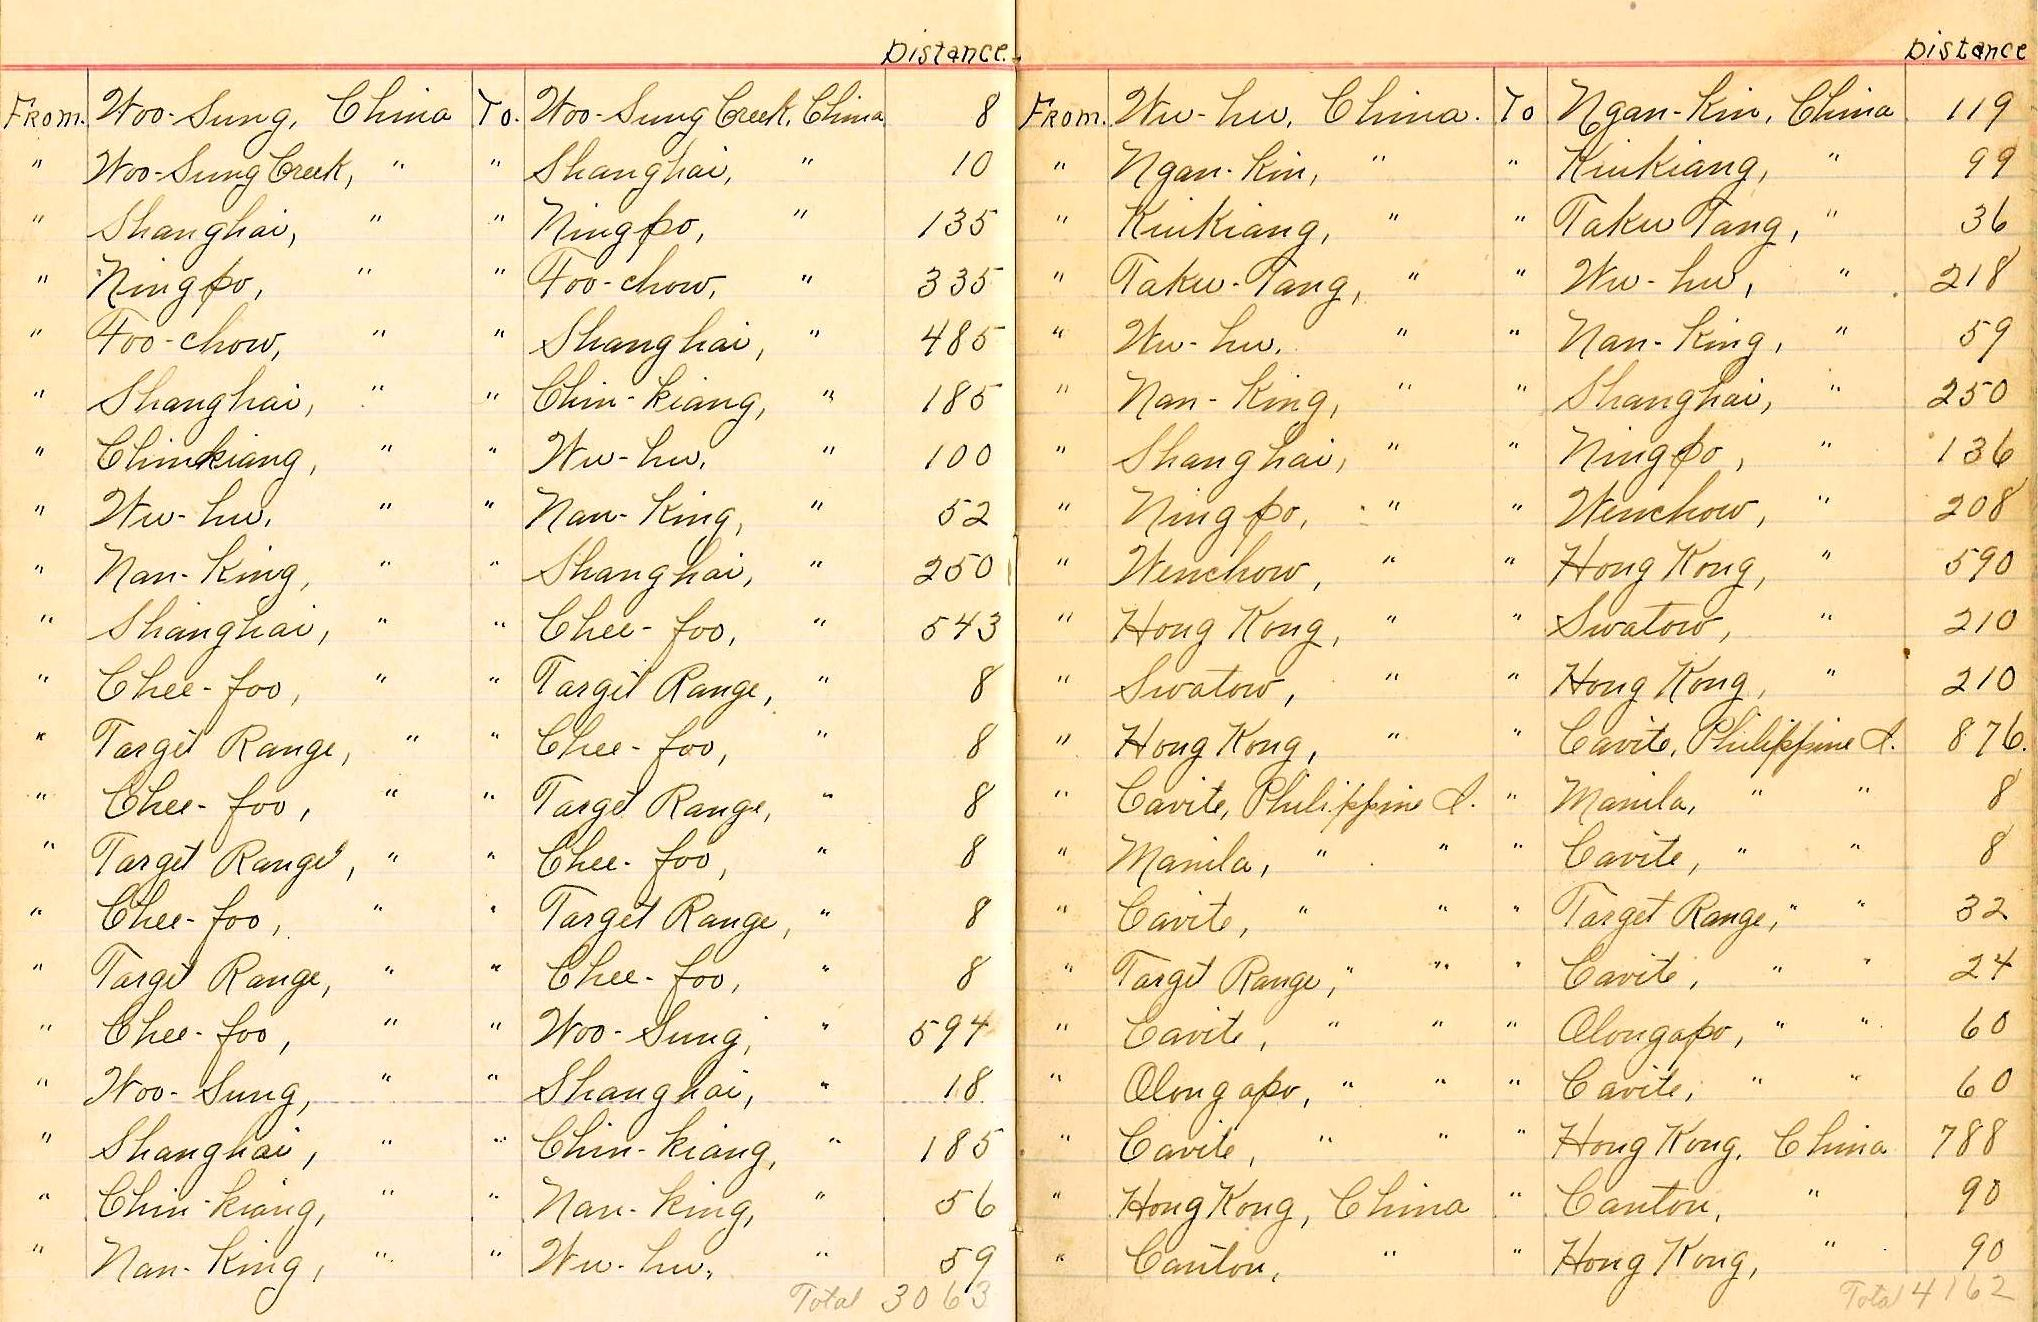 Distance.
From. Woo-Sung, China To. Woo-Sung Creek, China 8
" Woo-Sung Creek, " " Shanghai, " 10
" Shanghai, " " Ningpo, " 135
" Ningpo, " " Foo-chow, " 335
" Foo-chow, " " Shanghai, " 485
" Shanghai, " " Chin-kiang, " 185
" Chinkiang, " " Wu-hu, " 100
" Wu-hu, " " Nan-King, " 52
" Nan-King, " " Shanghai, " 250
" Shanghai, " " Chee-foo, " 543
" Chee-foo, " " Target Range, " 8
" Target Range, " " Chee-foo, " 8
" Chee-foo, " " Target Range, " 8
" Target Range, " " Chee-foo, " 8
" Chee-foo, " " Target Range, " 8
" Target Range, " " Chee-foo, " 8
" Chee-foo, " " Woo-Sung, " 594
" Woo-Sung, " " Shanghai, " 18
" Shanghai, " " Chin-kiang, " 185
" Chin-kiang, " " Nan-king, " 56
" Nan-King, " " Wu-hu, " 59
Total 3063
Distance
From. Wu-hu, China. To Ngan-Kin, China 119
" Ngan-Kin, " " Kiukiang, " 99
" Kiukiang, " " Taku Tang, " 36
" Taku-Tang, " " Wu-hu, " 218
" Wu-hu, " " Nan-King, " 59
" Nan-King, " " Shanghai, " 250
" Shanghai, " " Ningpo, " 136
" Ningpo, " " Wenchow, " 208
" Wenchow, " " Hong Kong, " 590
" Hong Kong, " " Swatow, " 210
" Swatow, " " Hong Kong, " 210
" Hong Kong, " " Cavite, Philippine I. 876.
" Cavite, Philippine I. " Manila, " " 8
" Manila, " " " Cavite, " " 8
" Cavite, " " " Target Range, " " 32
" Target Range, " " " Cavite, " " 24
" Cavite, " " " Olongapo, " " 60
" Olongapo, " " " Cavite, " " 60
" Cavite, " " " Hong Kong, China 788
" Hong Kong, China " Canton, " 90
" Canton, " " Hong Kong, " 90
Total 4162